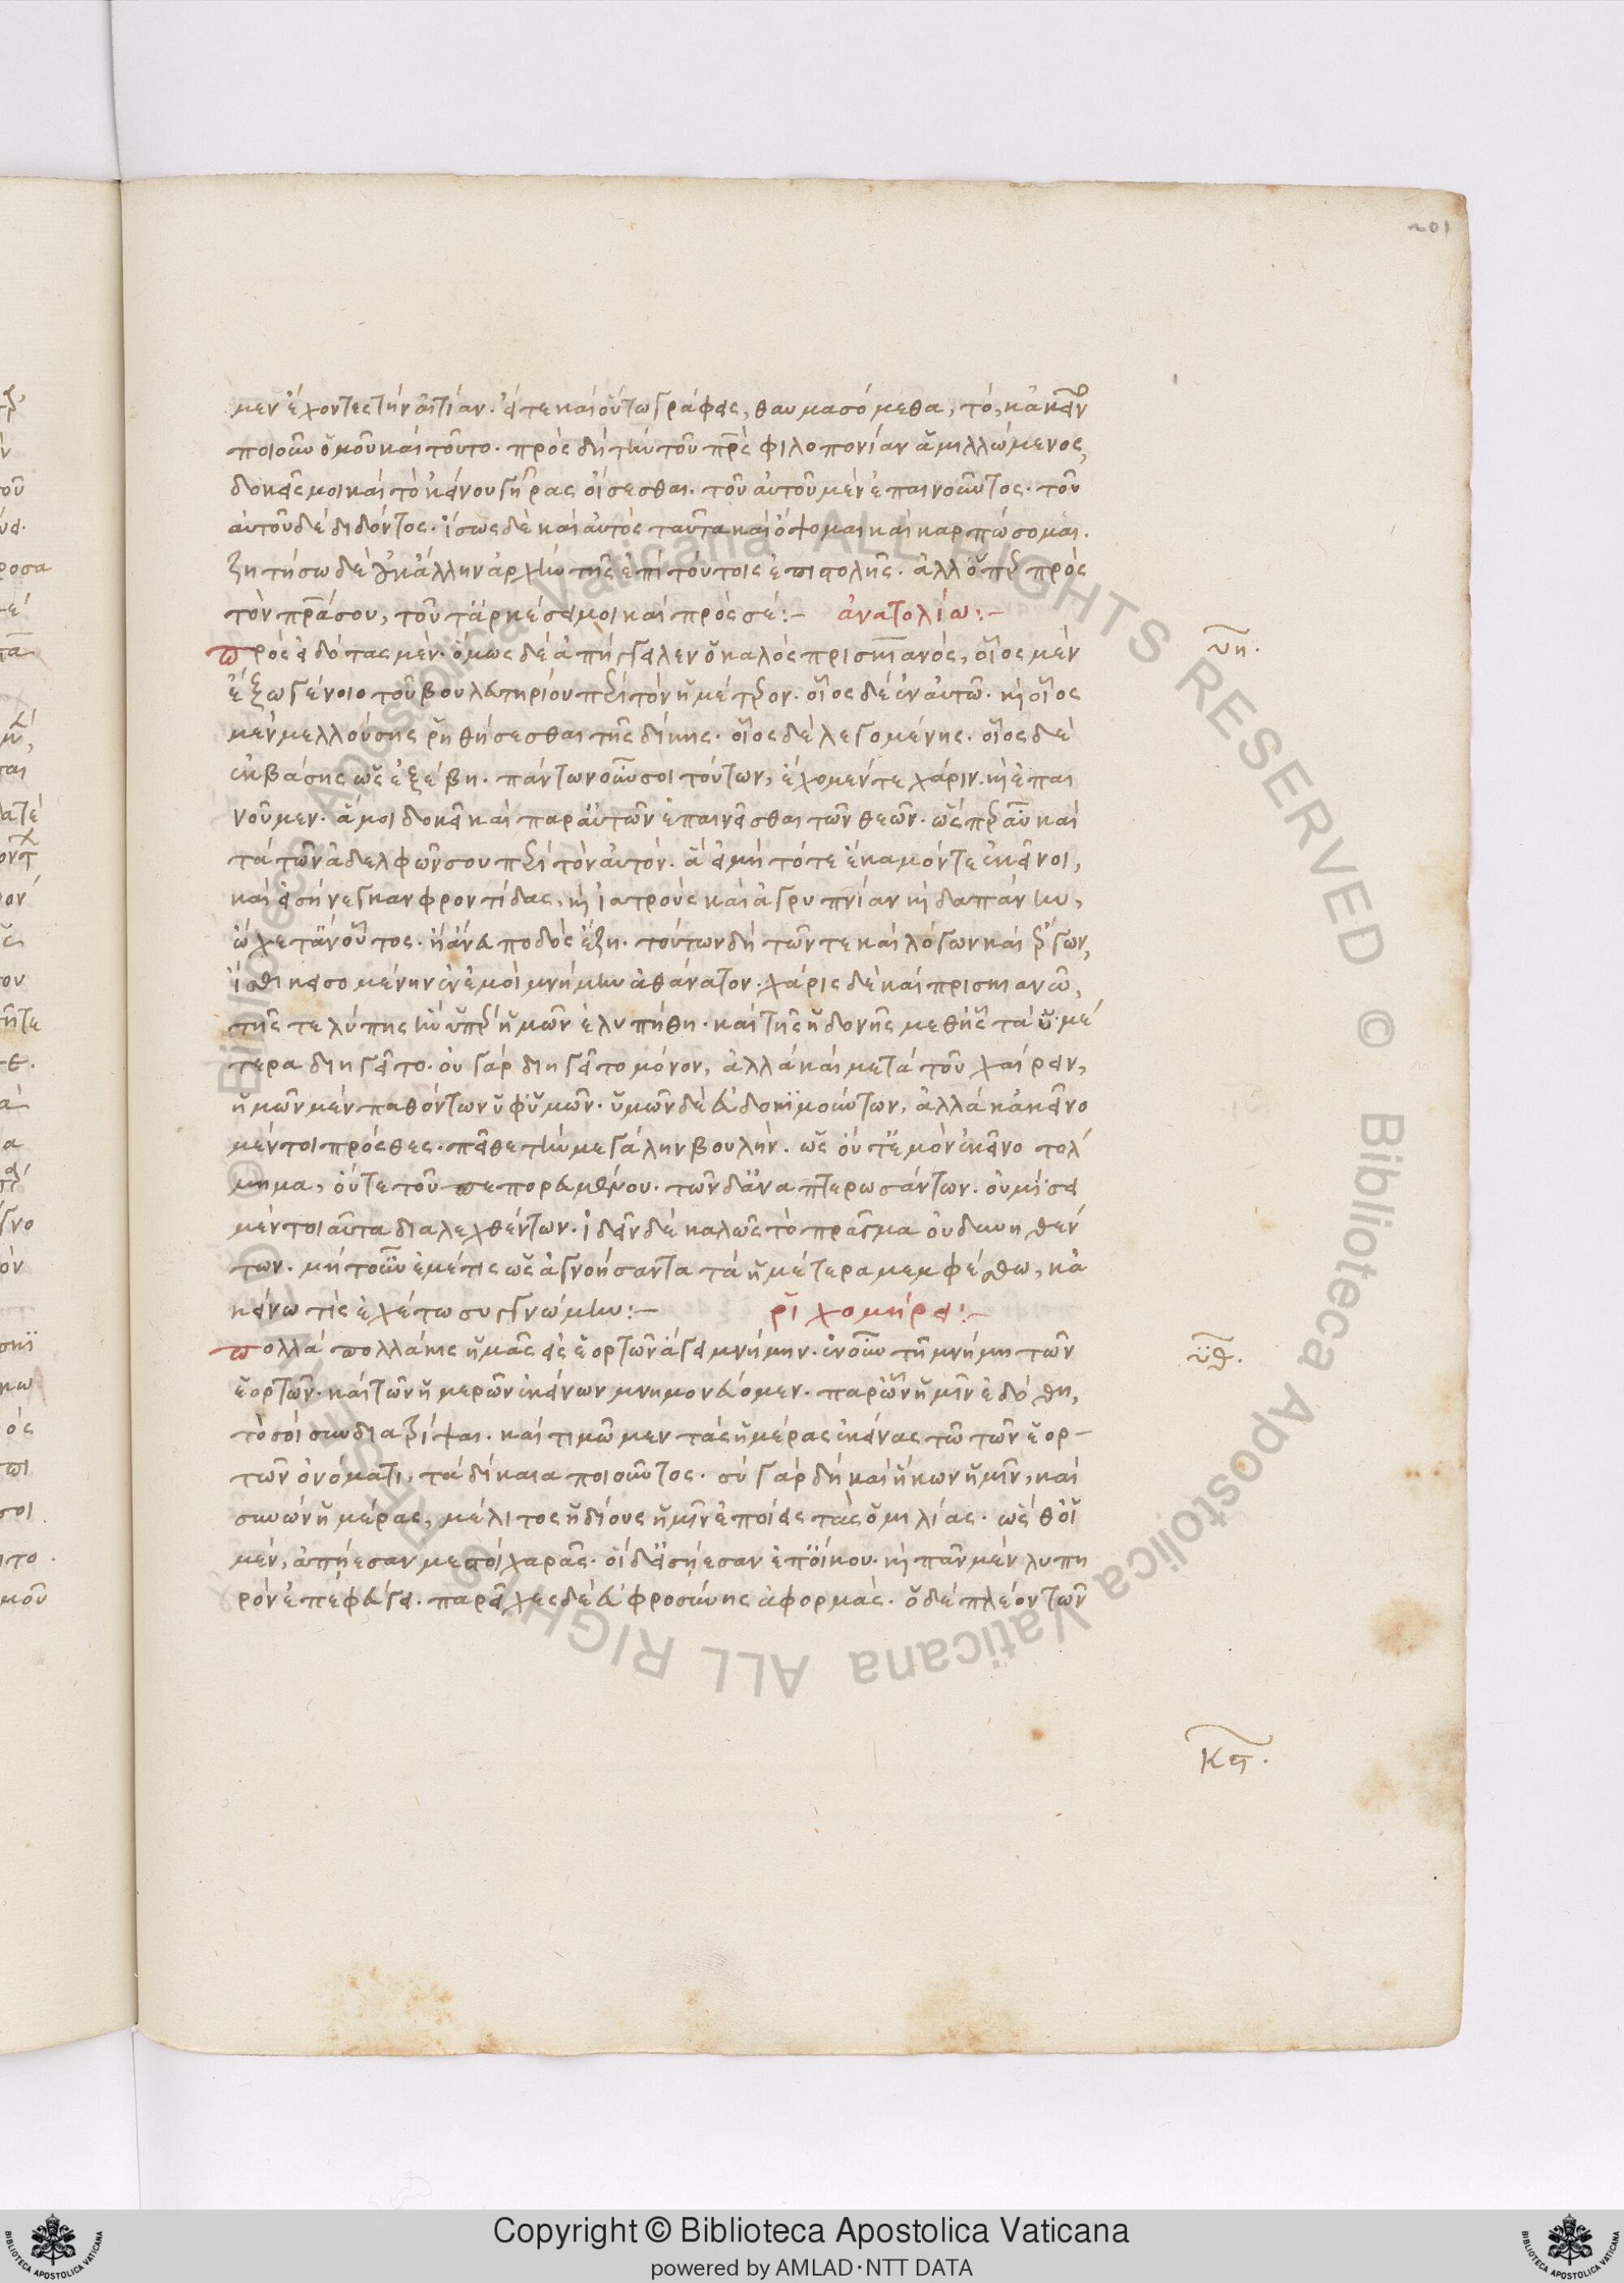 201
μεν ἔχοντες τὴν αἰτίαν. εἴτε καὶ οὕτω γράφεις, θαυμασόμεθα, τὸ, κἀκεῖν
ποιοῦν ὁμοῦ καὶ τοῦτο. πρὸς δὴ τὴν τοῦ πρς φιλοπονίαν ἁμιλλώμενος,
δοκεῖς μοι καὶ τὸ ἐκείνου γῆρας οἴσεσθαι. τοῦ αὐτοῦ μὲν ἐπαινοῦντος. τοῦ
αὐτοῦ δὲ διδόντος. ἴσως δὲ καὶ αὐτὸς ταῦτα καὶ ὄψομαι καὶ καρπώσομαι.
ζητήσω δὲ οὐκ ἄλλην ἀρχὴν τῆς ἐπὶ τούτοις ἐπιστολῆς. ἀλλ' ὅπερ πρὸς
τὸν πρᾶσου, τοῦτ' ἀρκέσει μοι καὶ πρὸς σέ:– ἀνατολίω:–
πρὸς εἰδότας μὲν. ὅμως δὲ ἀπήγγελεν ὁ καλὸς πρισκιανὸς, οἷος μὲν
υη.
ἔξω γένοιο τοῦ βουλευτηρίου περὶ τὸν ἡμέτερον. οἷος δὲ ἐν αὐτῶ. καὶ οἷος
μὲν μελλούσης ῥηθήσεσθαι τῆς δίκης. οἷος δὲ λεγομένης. οἷος δὲ
ἐκβάσης ὡς ἐξέβη. πάντων οὖν σοι τούτων, ἔχομέν τε χάριν. καὶ ἐπαι
νοῦμεν. ἅ μοι δοκεῖ καὶ παρ' αὐτῶν ἐπαινεῖσθαι τῶν θεῶν. ὥσπερ αὖ καὶ
τὰ τῶν ἀδελφῶν σου περὶ τὸν αὐτόν. ἃ εἰ μὴ τότε ἔκαμόν τε ἐκεῖνοι,
καὶ εἰσήνεγκαν φροντίδας, καὶ ἰατροὺς καὶ ἀγρυπνίαν καὶ δαπάνην,
ᾤχετ' ἂν οὗτος. ἢ ἄνευ ποδὸς ἔζη. τούτων δὴ τῶν τε καὶ λόγων καὶ ἔργων,
ἴσθι κεισομένην ἐν ἐμοὶ μνήμην ἀθάνατον. χάρις δὲ καὶ πρισκιανῶ,
τῆς τε λύπης ἣν ὑπὲρ ἡμῶν ἐλυπήθη. καὶ τῆς ἡδονῆς μεθ' ἧς τὰ ὑμέ
τερα διηγεῖτο. οὐ γὰρ διηγεῖτο μόνον, ἀλλὰ καὶ μετὰ τοῦ χαίρειν,
ἡμῶν μὲν παθόντων ὑφ' ὑμῶν. ὑμῶν δὲ εὐδοκιμούντων. ἀλλὰ κἀκεῖνο
μέντοι πρόσθες. πεῖθε τὴν μεγάλην βουλὴν. ὡς οὔτ' ἐμὸν ἐκεῖνο τόλ
μημα, οὔτε τοῦ πεπορευμένου. τῶν δ' ἀναπτερωσάντων. οὐ μίσει
μέντοι αὐτὰ διαλεχθέντων. ἰδεῖν δὲ καλῶς τὸ πρᾶγμα οὐ δυνηθέν
των. μήτ' οὖν ἐμέ τις ὡς ἀγνοήσαντα τὰ ἡμέτερα μεμφέσθω, κἀ
κείνω τις ἐχέτω συγγνώμην:– ῥιχομήρει:–
πολλὰ πολλάκις ἡμᾶς εἰς ἑορτῶν ἄγει μνήμην. ἐν οὖν τῆ μνήμη τῶν
υθ.
ἑορτῶν. καὶ τῶν ἡμερῶν ἐκείνων μνημονεύομεν. παρ' ὧν ἡμῖν ἐδόθη,
τὸ σοὶ συνδιατρίψαι. καὶ τιμῶμεν τὰς ἡμέρας ἐκείνας τῶ τῶν ἑορ–
τῶν ὀνόματι, τὰ δίκαια ποιοῦντος. σὺ γὰρ δὴ καὶ ἥκων ἡμῖν, καὶ
συνὼν ἡμέρας, μέλιτος ἡδίους ἡμῖν ἐποίεις τὰς ὁμιλίας. ὡς θ' οἱ
μὲν, ἀπήεσαν μεστοὶ χαρᾶς. οἱ δ' εἰσήεσαν ἐπ' οἴκου. καὶ πᾶν μὲν λυπη
ρὸν ἐπέφευγε. παρεῖχες δὲ εὐφροσύνης ἀφορμάς. ὁ δὲ πλέον τῶν
κϛ.
Copyright © Biblioteca Apostolica Vaticana
powered by AMLAD·NTT DATA